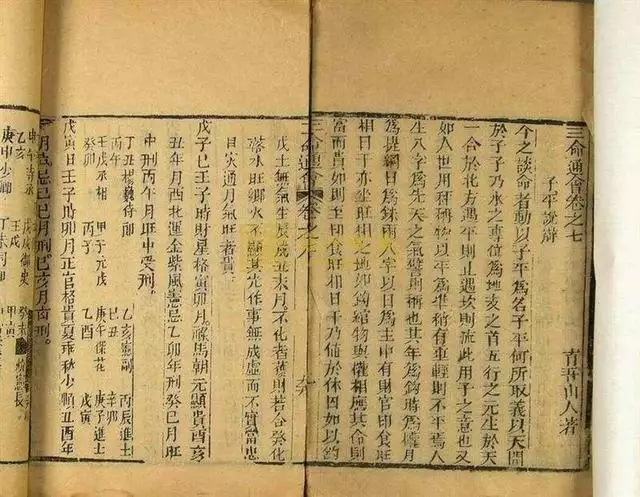 三命通會卷之七
子平說辯
育吾山人著
今之談命者動以子平為名子平何所取義以天開
於子子乃水之專位為地支之首五行之元生於天
一合於北方遇平則止遇坎則流此用子之意也又
如人世用秤稱物以平為準稍有重輕則不平焉人
生八字為先天之氣譬則秤也其年為鈎時為權月
為提綱日為銖兩八字以日為主中有財官印食旺
相日干亦坐旺相之地即鈎綰物與權相應其命則
富而貴如則主印食旺相日干乃値於休囚如以鈎
三命通會 卷之八
戊土無氣生辰戌丑未月不化者貧財若合癸化
落水旺鄉火不顯其光作事無成虛而不實
日火通月氣旺者貴
戊子日壬子時財星格寅卯月祿馬朝元顯貴酉亥
丑年月西北運金紫風憲忌乙卯年刑癸巳月旺
中刑丙午月旺中受刑。
丁丑 丙午 侍郎
壬戌丞相 癸卯
甲子元戎 丙子
乙亥 己丑
庚午探花 乙酉
丙辰進士 辛卯
庚子進士 戊寅
戊寅日壬子時卯月正官格貴夏 秋少順丑酉年
忌己巳月刑巳亥月 刑。
乙亥
庚申少卿
戊戌御史
壬戌
甲寅
癸未